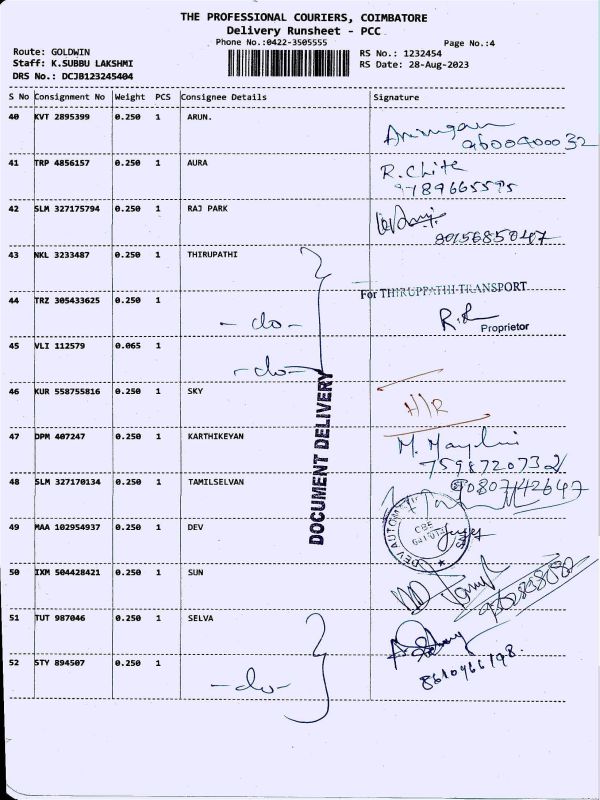 THE PROFESSIONAL COURIERS, COIMBATORE
Delivery Runsheet - PCC
Phone No.:0422-3505555
Page No.:4
Route: GOLDWIN
RS No.: 1232454
Staff: K.SUBBU LAKSHMI
RS Date: 28-Aug-2023
DRS No.: DCJB123245404
S No Consignment No Weight PCS Consignee Details Signature
40 KVT 2895399 0.250 1 ARUN.
9600400032
41 TRP 4856157 0.250 1 AURA
R. Chite
9789665595
42 SLM 327175794 0.250 1 RAJ PARK
8015685047
43 NKL 3233487 0.250 1 THIRUPATHI
For THIRUPPATHI TRANSPORT
44 TRZ 305433625 0.250 1
- do -
Proprietor
45 VLI 112579 0.065 1
- do -
46 KUR 558755816 0.250 1 SKY
H/R
47 DPM 407247 0.250 1 KARTHIKEYAN
7598720732
48 SLM 327170134 0.250 1 TAMILSELVAN
9080742647
DOCUMENT DELIVERY
49 MAA 102954937 0.250 1 DEV
50 IXM 504428421 0.250 1 SUN
51 TUT 987046 0.250 1 SELVA
52 STY 894507 0.250 1
- do -
8610466198.